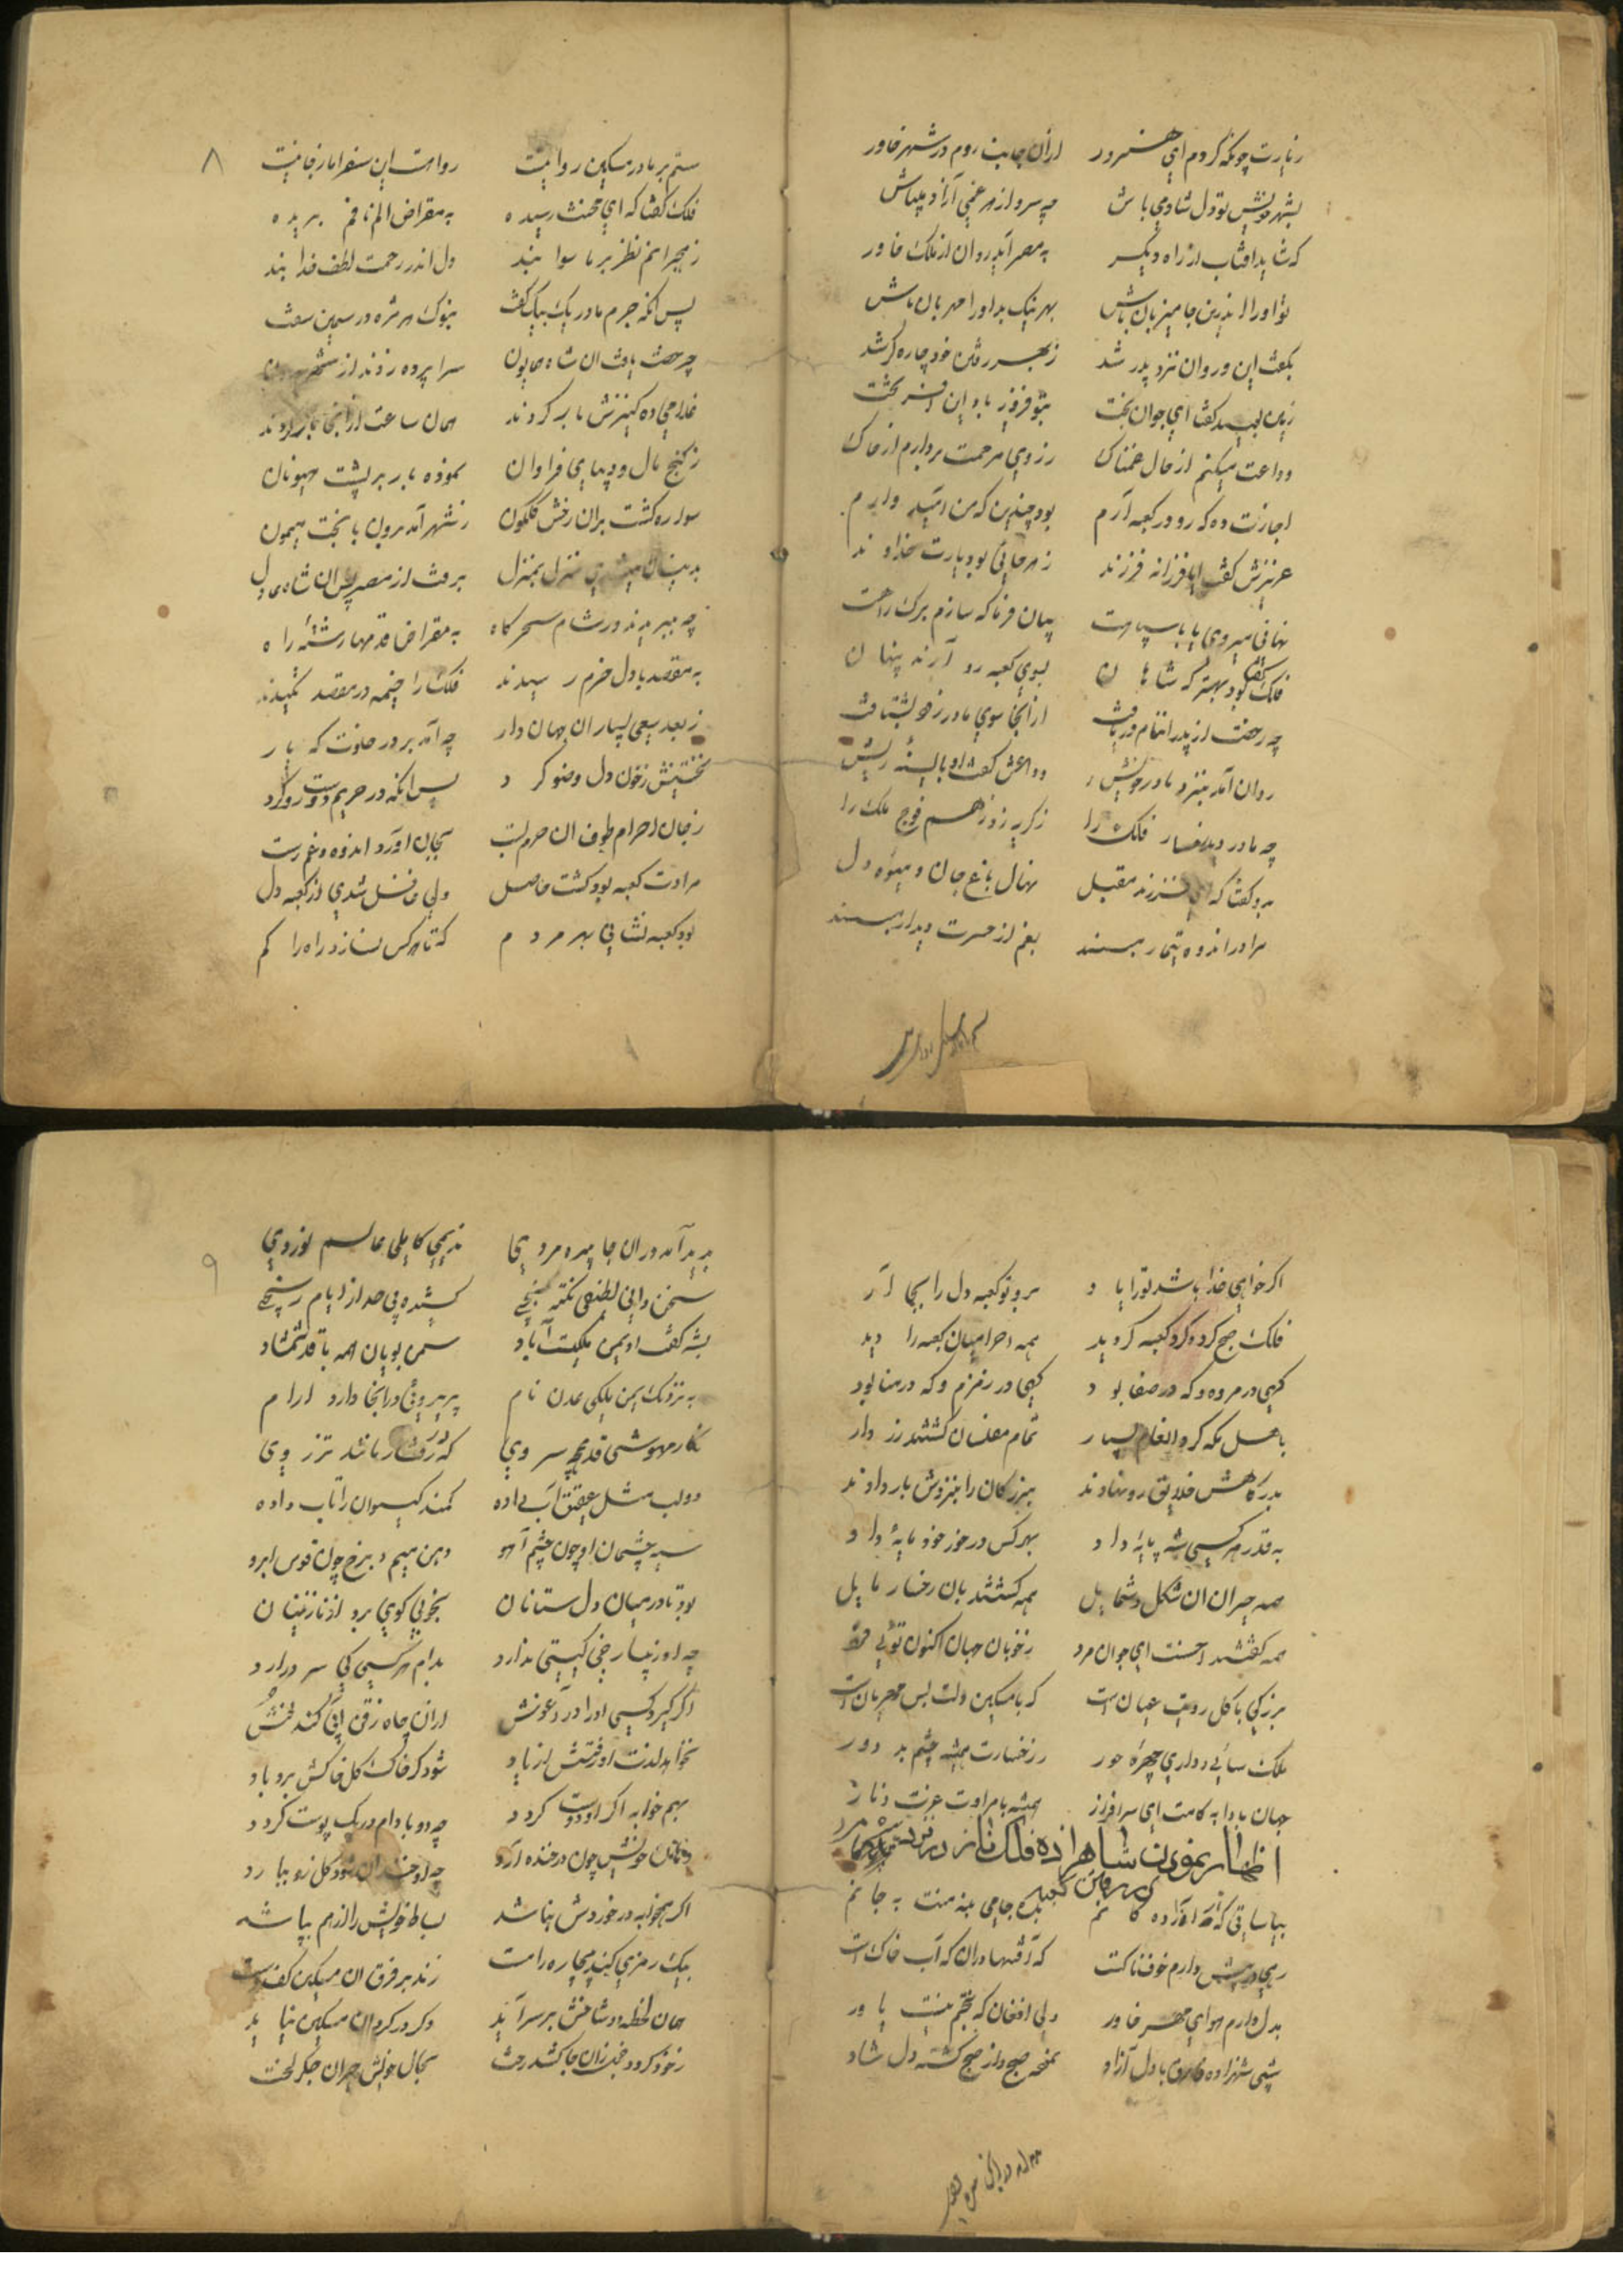 زیارت چونکه کردم ای هنرور ازان جانب روم در شهر خاور
بشهر خویش تو دل شاد می باش چه سرو از هر غمی آزاد میباش
که شاید افتاب از راه دیگر به مصر آید روان از ملک خاور
تو او را اندرین جا میزبان باش بهر نیک بد او را مهربان باش
بگفت این و روان نزد پدر شد ز بهر رفتن خود چاره گر شد
زمین بوسید گفتا ای جوان بخت
وداعت میکنم از حال غمناک ز روی مرحمت بردارم از خاک
اجازت ده که رو در کعبه آرم بود چندین که من امید دارم
عزیزش گفت ایا فرزانه فرزند
نهانی میروی یا با سپاهت بیان فرما که سازم برک راهت
فلک گفتا بود بهتر که شاهان بسوی کعبه رو آرند پنهان
چه رخصت از پدر انعام دریافت ازانجا سوی مادر زود بشتافت
روان آمد بنزد مادر خویش وداعش گفت او با سینهٔ ریش
چه مادر دید رخسار فلک را ز گریه زد زهم فوج ملک را
بدو گفتا که ای فرزند مقبل نهال باغ جان و میوهٔ دل
مرا در اندوه تیمار مپسند بغم از حسرت دیدار مپسند
۸
ستم بر مادر مسکین روا نیست روا هست این سفر اما ز جا نیست
فلک گفتا که ای محنت رسیده به مقراض الم نافم بریده
ز هجرانم نظر بر ماسوا بند دل اندر رحمت لطف خدا بند
پس انکه جرم مادر یک بیک گفت بنوک هر مژه در سیمین سفت
چه رخصت یافت ان شاه همایون سرا پرده زدند از شهر بیرون
غلامی ده کنیزش بار کردند همان ساعت ازانجا بار کردند
ز گنج مال و دیبای فراوان نموده بار بر پشت هیونان
سواره گشت بران رخش گلگون ز شهر آمد برون با بخت میمون
بدینسان میشدی منزل بمنزل برفت از مصر
چه میبریدند در شام سحرگاه به مقراض قدمها رشتهٔ راه
به مقصد با دل خرم رسیدند فلک را خیمه در مقصد کشیدند
ز بعد سعی بسیار ان جهان دار چه آمد بر در خلوت که یار
نخستینش ز خون دل وضو کرد پس انکه در حریم دوست رو کرد
ز جان احرام طوف ان حرم بست بجان آورد اندوه و غم رست
مرادت کعبه بود گشت حاصل ولی غافل شدی از کعبه دل
بود کعبه نشانی بهر مردم که تا هرکس نسازد راه را گم
اگر خواهی خدا باشد تو را یاد برو تو کعبه دل را بجا آر
فلک حج کرد و گرد کعبه گردید همه احرامیان کعبه را دید
گهی در مروه و که در صفا بود گهی در زمزم و که در منا بود
باهل مکه کرد انعام بسیار تمام مفلسان گشتند زردار
بدرگاهش خلایق رو نهادند بزرگان را بنزدش بار دادند
به قدر هر کسی شه پایهٔ داد بهر کس در خور خود مایهٔ داد
همه حیران ان شکل و شمایل همه گشتند بان رخسار مایل
همه گفتند احسنت ای جوان مرد ز خوبان جهان اکنون توئی فرد
بزرگی با کل رویت عیان است که با مسکین دلت بس مهربان است
ملک سائی و داری چهرهٔ حور ز رخسارت همیشه چشم بد دور
جهان بادا به کامت ای سرافراز همیشه با مرادت عزت و ناز
اظهار نمودن شاهزاده فلک ناز در نزد
بیا ساقی که از آزاده کانم بیک جامی بنه منت به جانم
رهی در پیش دارم خوفناکست که آفتها دران که آب خاک است
بدل دارم هوای مهر خاور ولی افغان که بختم نیست یاور
شبی شهزاده با دل آزاد بخیمه صبح و از صبح گشته دل شاد
۹
پدید آمد دران جا پیره مردی ندیمی کاملی عالم نوردی
سخن دانی لطیفی نکته سنجی کشیده بی حد از ایام رنجی
بشه گفت او یمن ملکیست آباد سمن بویان همه با قد شمشاد
به نزدیک یمن ملکی عدن نام پریروئی درانجا دارد ارام
نگار مهوشی قدش چه سروی که در رفتار ماند تذروی
دو لب مثل عقیق آب داده کمند گیسوان را تاب داده
سیه چشمان او چون چشم آهو دهن میم و برخ چون قوس ابرو
بود تا در میان دل ستانان بخوبی گوی برد از نازنینان
چه او زیبا رخی گیتی ندارد بدام هر کسی کی سر درارد
اگر گیرد کسی او را در آغوش
نخواهد لذت او رفتش از یاد شود گر خاک گل خاکش برد باد
بهم خوابه اگر او دوست گردد چه دو بادام در یک پوست گردد
دهان خویش چون در خنده آرد
اگر همخوابه در خوردش نباشد بساط خویش را از هم بپاشد
بیک رمزی کند بیچاره رامت زند بر فرق ان مسکین کف دست
همان لحظه دو شاخش بر سر آید دگر در گردن ان مسکین نیاید
بحال خویش حیران جگر لخت